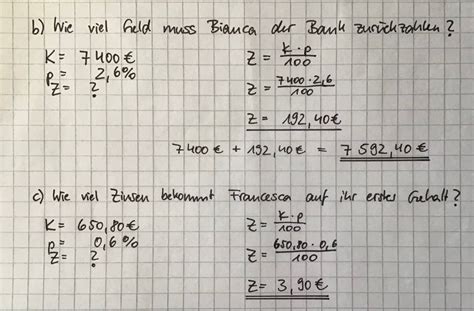 b) Wie viel Geld muss Bianca der Bank zurückzahlen?
K = 7400 € Z = K · p / 100
p = 2,6% Z = 7400 · 2,6 / 100
Z = ?
Z = 192,40 €
7400 € + 192,40 € = 7592,40 €
c) Wie viel Zinsen bekommt Francesca auf ihr erstes Gehalt?
K = 650,80 € Z = K · p / 100
p = 0,6% Z = 650,80 · 0,6 / 100
Z = ?
Z = 3,90 €